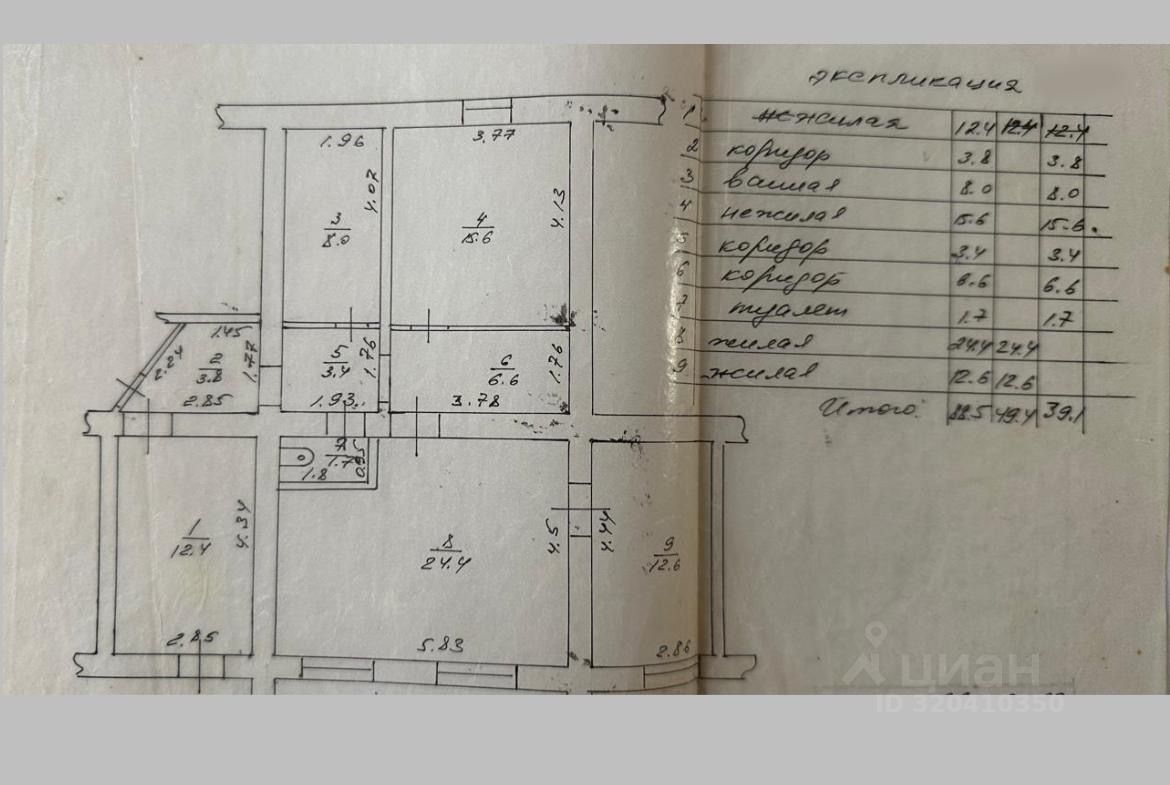 экспликация
1 нежилая 12.4 12.4 12.4
2 коридор 3.8 3.8
3 ванная 8.0 8.0
4 нежилая 15.6 15.6
5 коридор 3.4 3.4
6 коридор 6.6 6.6
7 туалет 1.7 1.7
8 жилая 24.4 24.4
9 жилая 12.6 12.6
Итого: 88.5 49.4 39.1
1.96
3.77
3
8.0
4.07
4
15.6
4.13
1.45
2.24
2
3.8
1.77
2.85
5
3.4
1.76
1.93
6
6.6
1.76
3.78
7
1.7
0.95
1.8
1
12.4
4.34
2.85
8
24.4
4.5
5.83
4.44
9
12.6
2.86
циан
ID 320410350